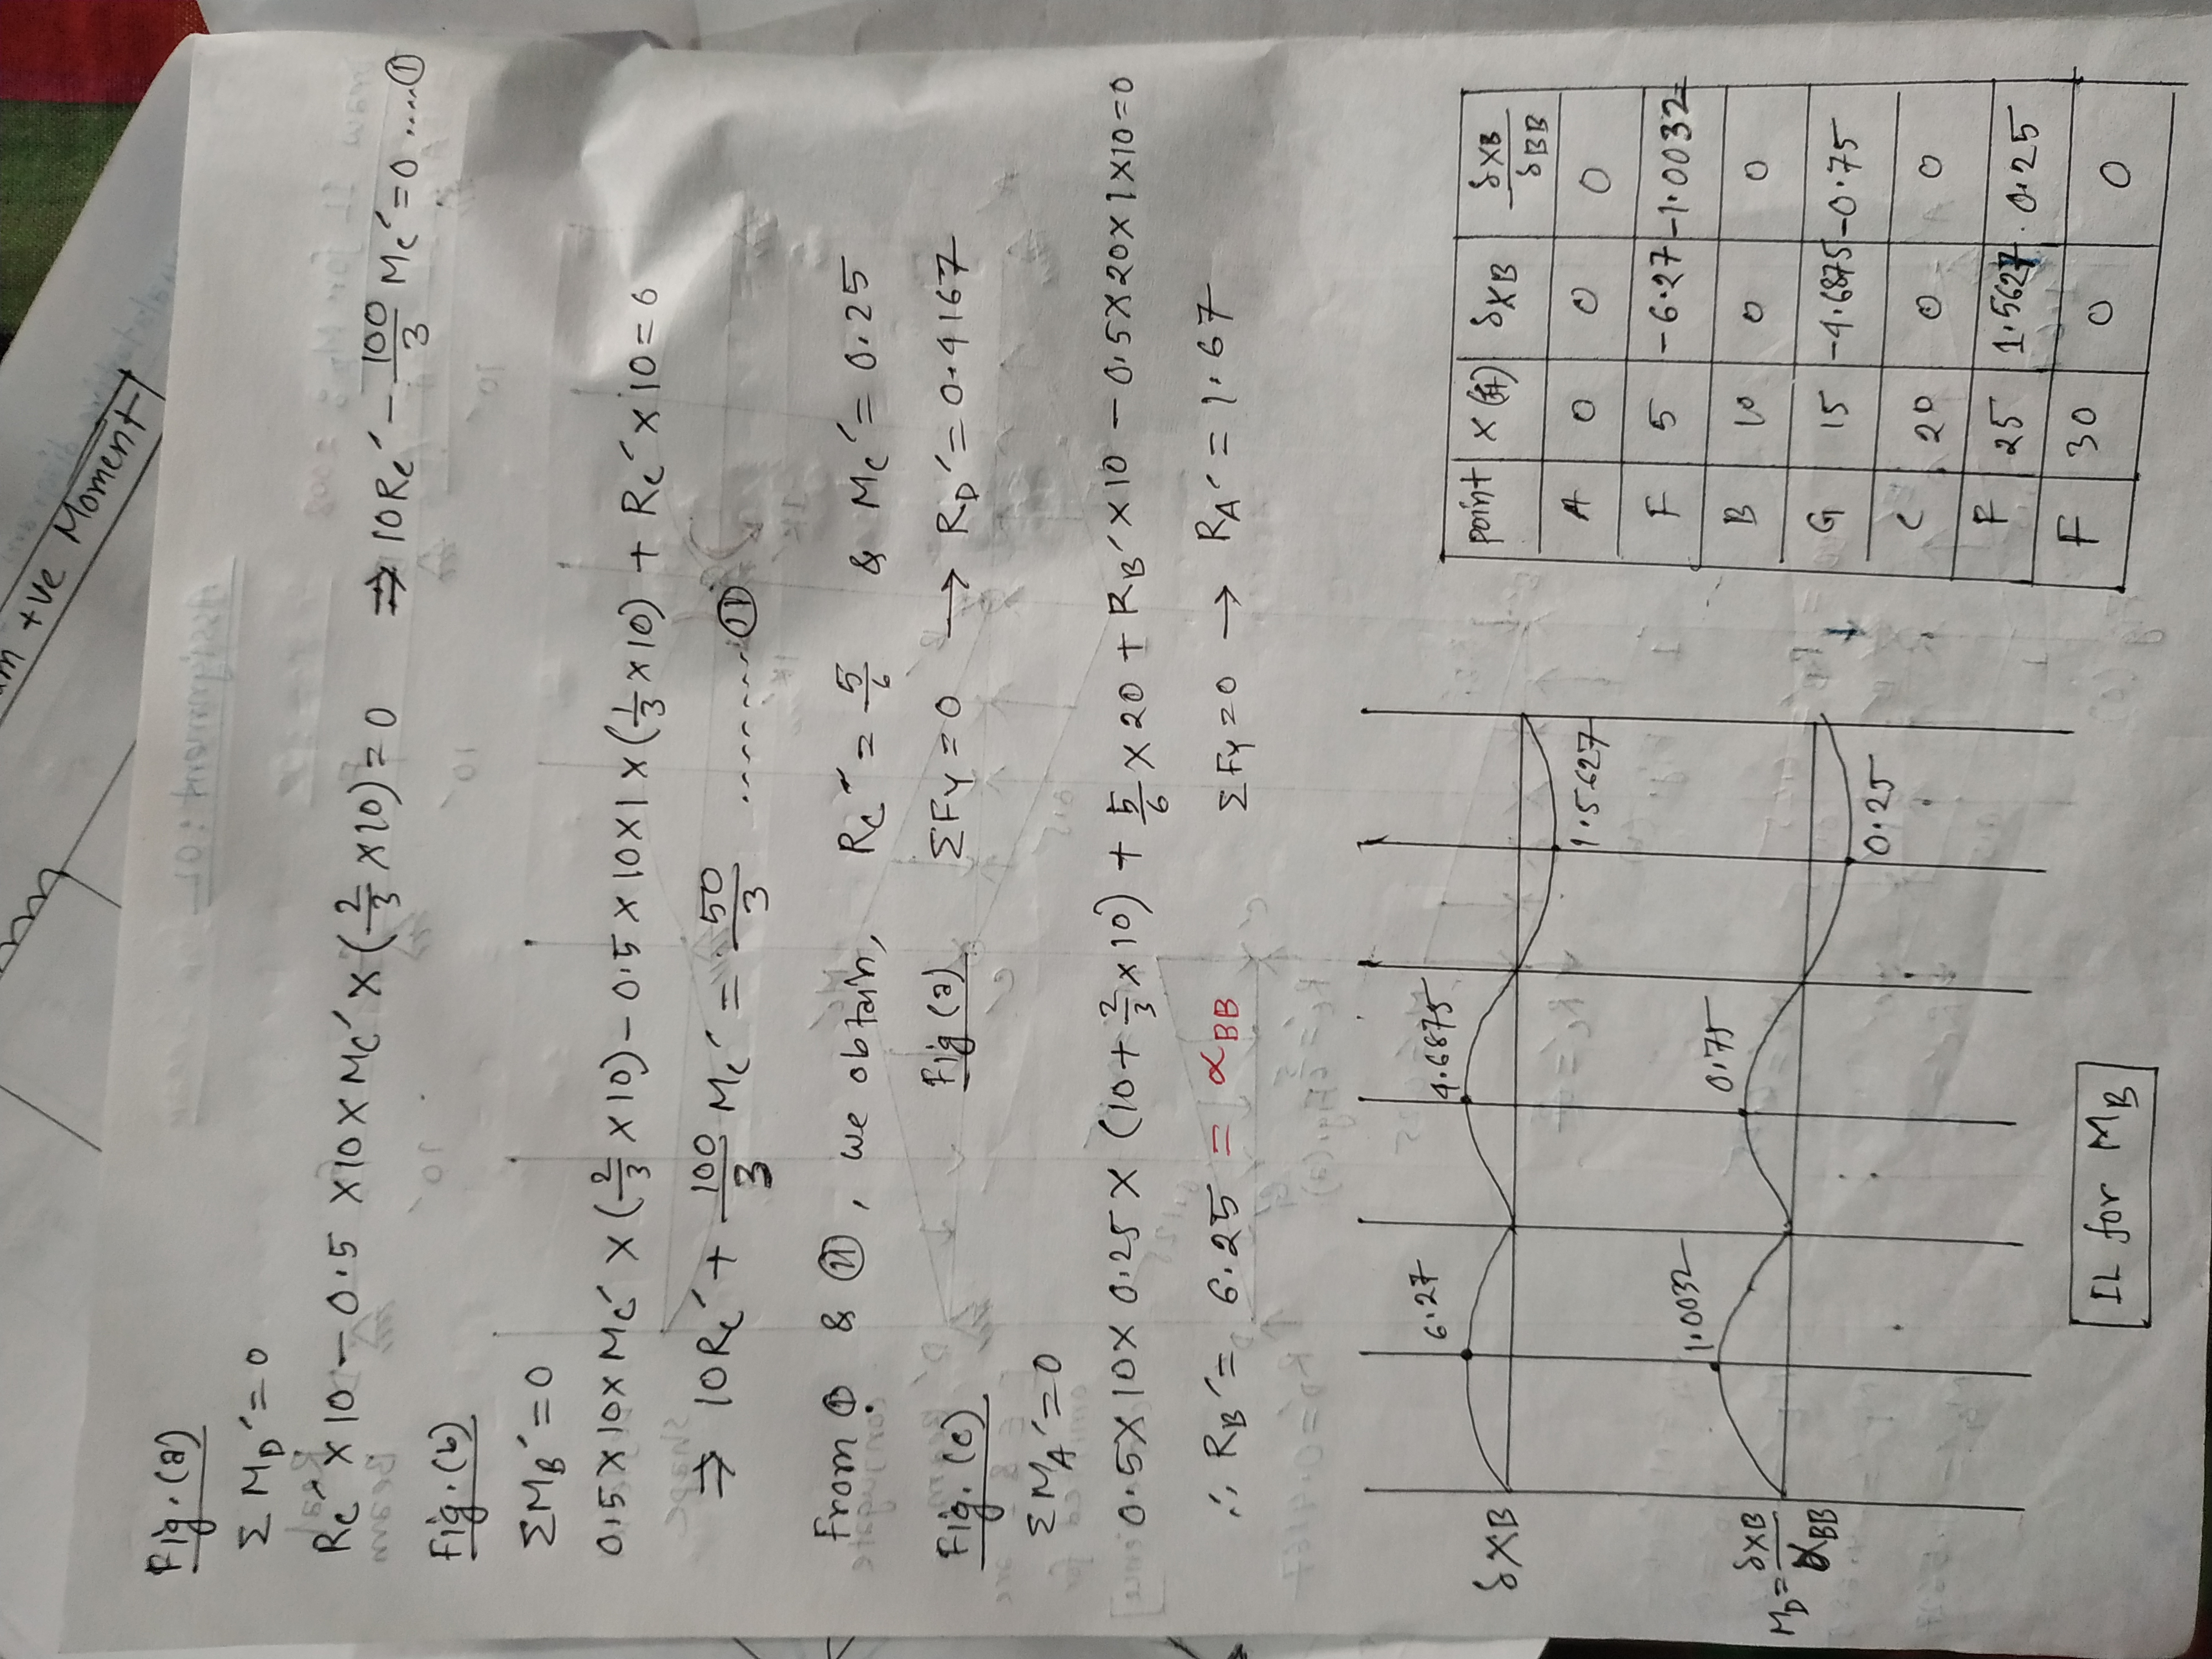 um +ve Moment
Fig.(a)
Σ M_D′ = 0
R_C′ × 10 − 0.5 × 10 × M_C′ × (2/3 × 10) = 0 ⇒ 10R_C′ − 100/3 M_C′ = 0 .....①
Fig.(b)
Σ M_B′ = 0
0.5 × 10 × M_C′ × (2/3 × 10) − 0.5 × 10 × 1 × (1/3 × 10) + R_C′ × 10 = 0
⇒ 10R_C′ + 100/3 M_C′ = 50/3 ..........⑪
From ① & ⑪, we obtain, R_C′ = 5/6 & M_C′ = 0.25
Fig(a) ΣFy = 0 → R_D′ = 0.4167
Fig.(c)
Σ M_A′ = 0
0.5 × 10 × 0.25 × (10 + 2/3 × 10) + 5/6 × 20 + R_B′ × 10 − 0.5 × 20 × 1 × 10 = 0
∴ R_B′ = 6.25 = α_BB ΣFy = 0 → R_A′ = 1.67
δXB
6.27 4.6875 1.5627
M_D = δXB/αBB
1.0032 0.75 0.25
IL for M_B
point x (ft) δXB δXB/δBB
A 0 0 0
F 5 −6.27 −1.0032
B 10 0 0
G 15 −4.6875 −0.75
C 20 0 0
F 25 1.5627 0.25
F 30 0 0